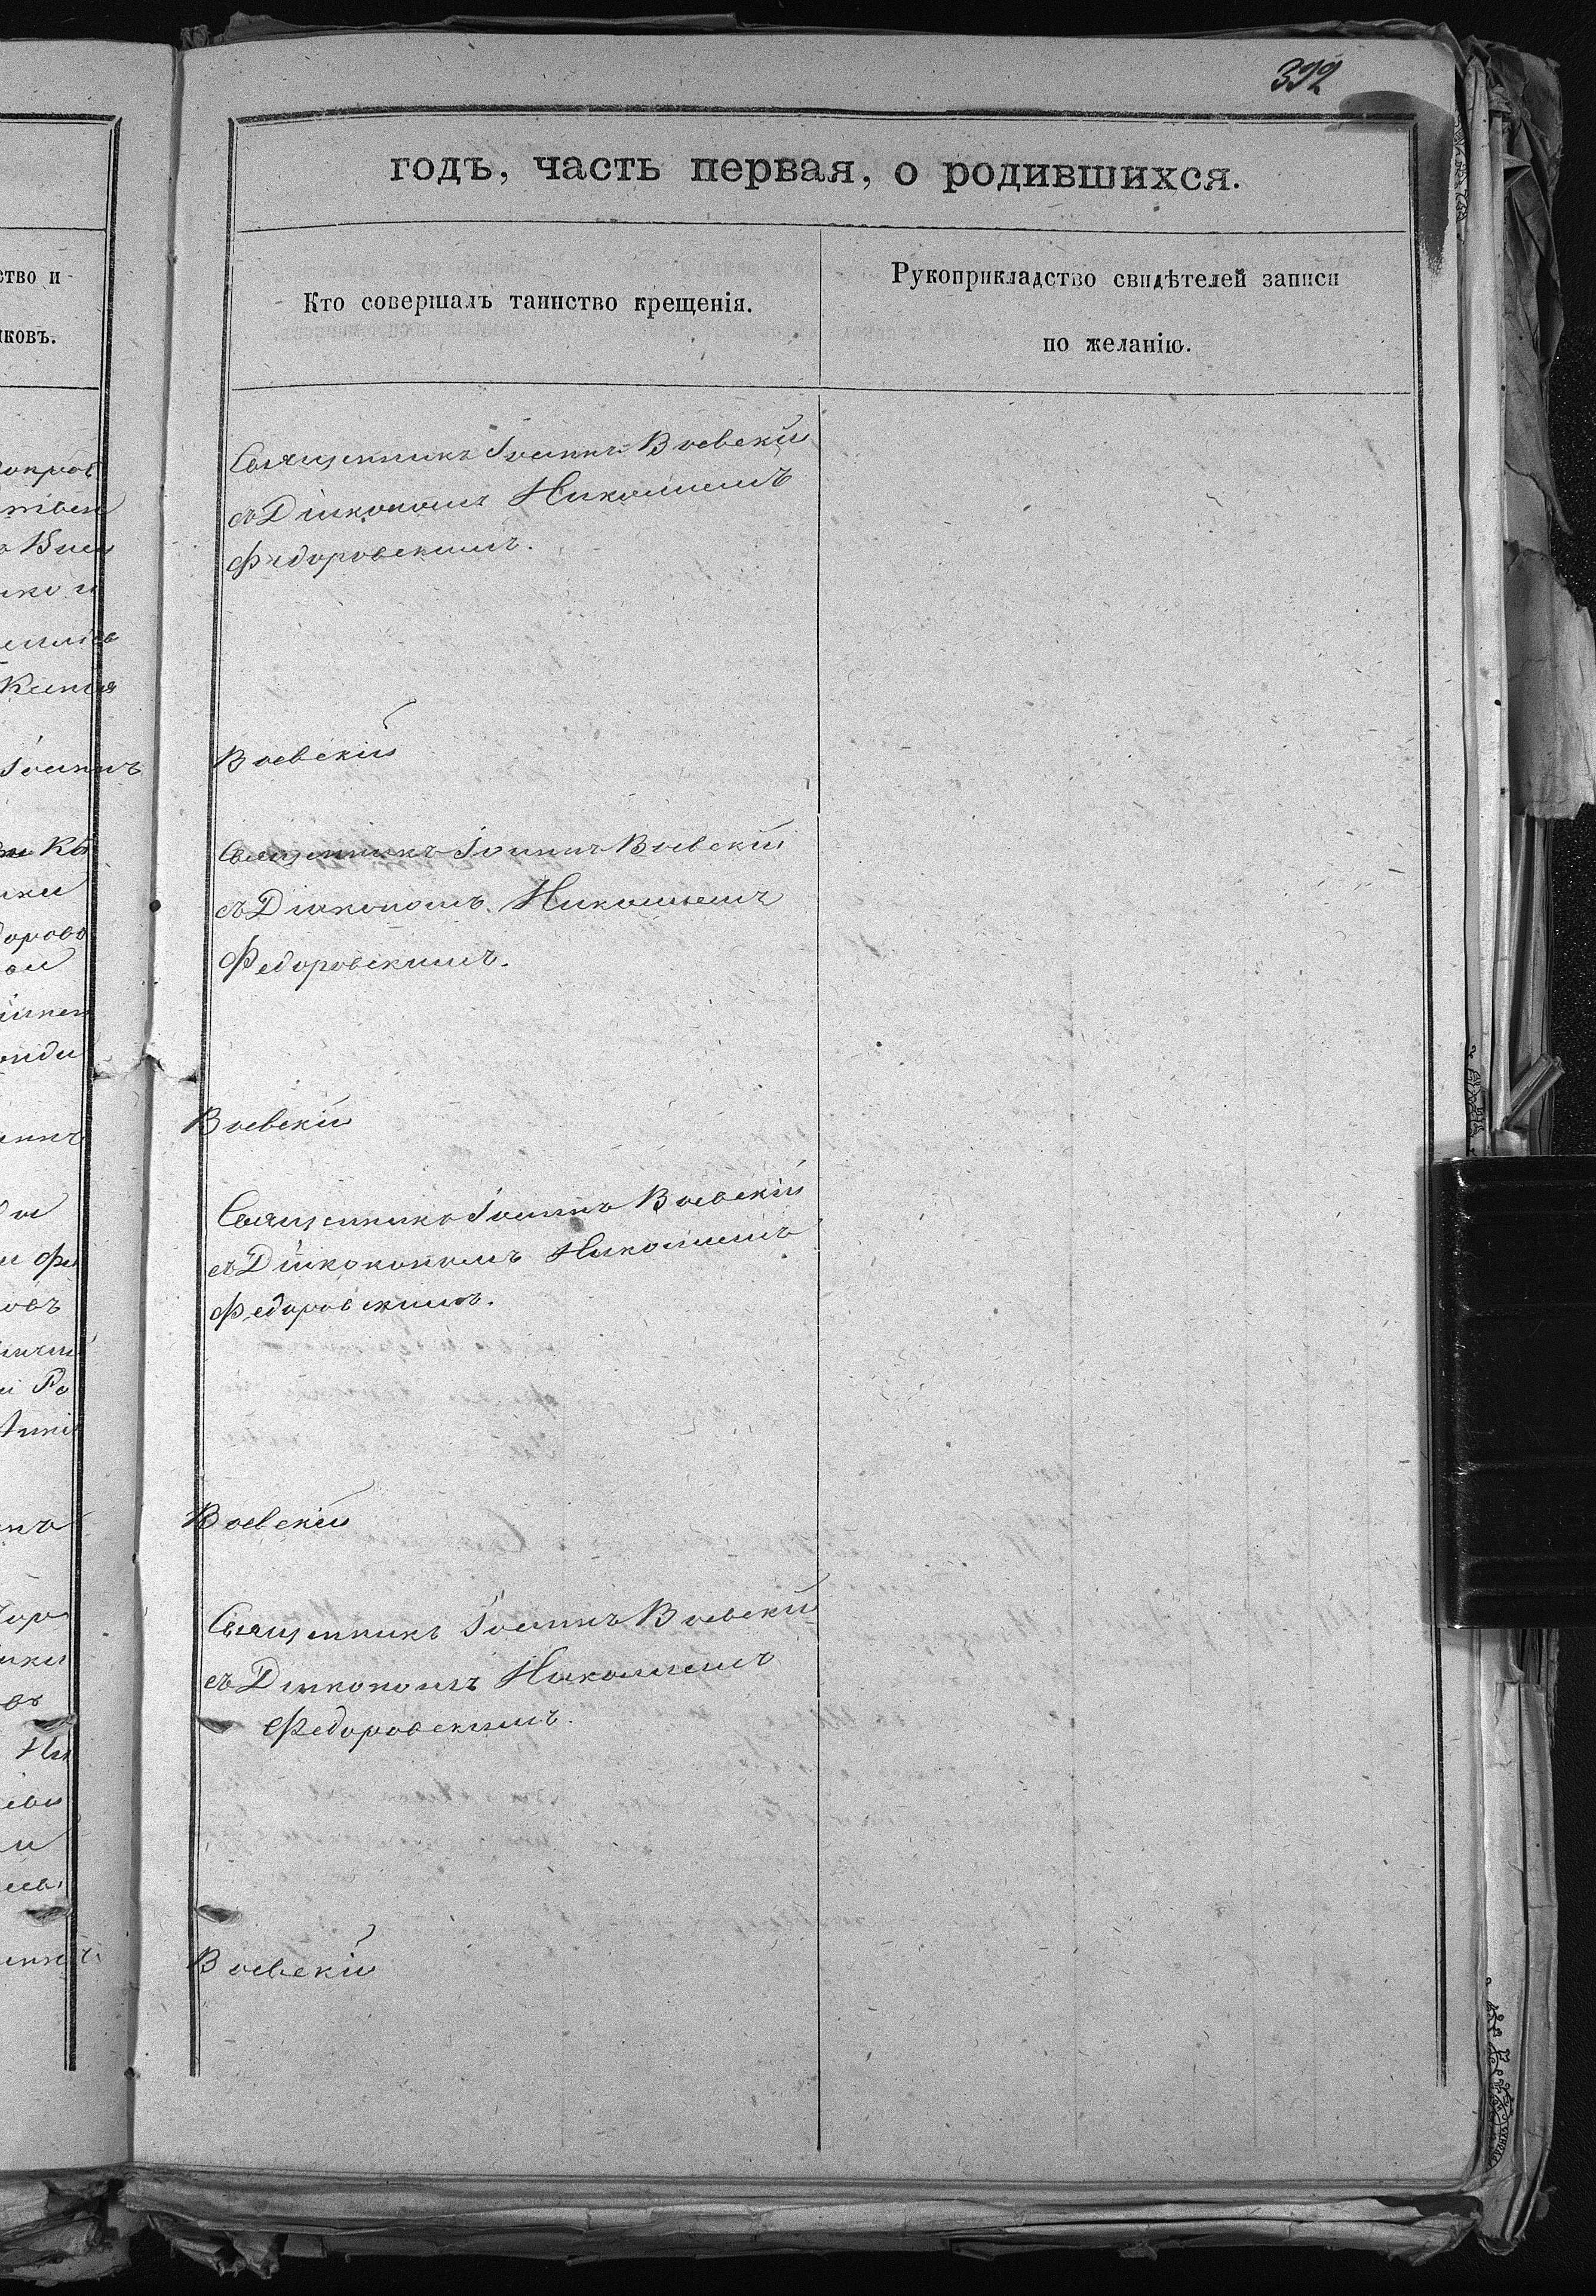 392
годъ, часть первая, о родившихся.
ство и
иковъ.
Кто совершалъ таинство крещенія.
Рукоприкладство свидѣтелей записи
по желанію.
Священникъ Іоаннъ Воевскій
съ Діякономъ Николаемъ
Федоровскимъ.
Воевскій
Священникъ Іоаннъ Воевскій
съ Діякономъ Николаемъ
Федоровскимъ.
Воевскій
Священникъ Іоаннъ Воевскій
съ Діякономъ Николаемъ
Федоровскимъ.
Воевскій
Священникъ Іоаннъ Воевскій
съ Діякономъ Николаемъ
Федоровскимъ.
Воевскій